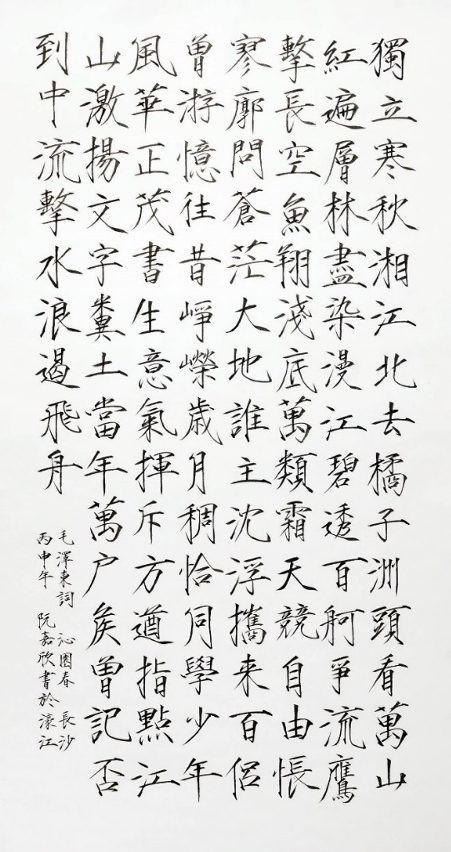 獨立寒秋湘江北去橘子洲頭看萬山
紅遍層林盡染漫江碧透百舸爭流鷹
擊長空魚翔淺底萬類霜天競自由悵
寥廓問蒼茫大地誰主沈浮攜来百侶
曾游憶往昔崢嶸歳月稠恰同學少年
風華正茂書生意氣揮斥方遒指點江
山激揚文字糞土當年萬户矦曾記否
到中流擊水浪遏飛舟
毛澤東詞 沁園春 長沙
丙申年 阮嘉欣書於濠江